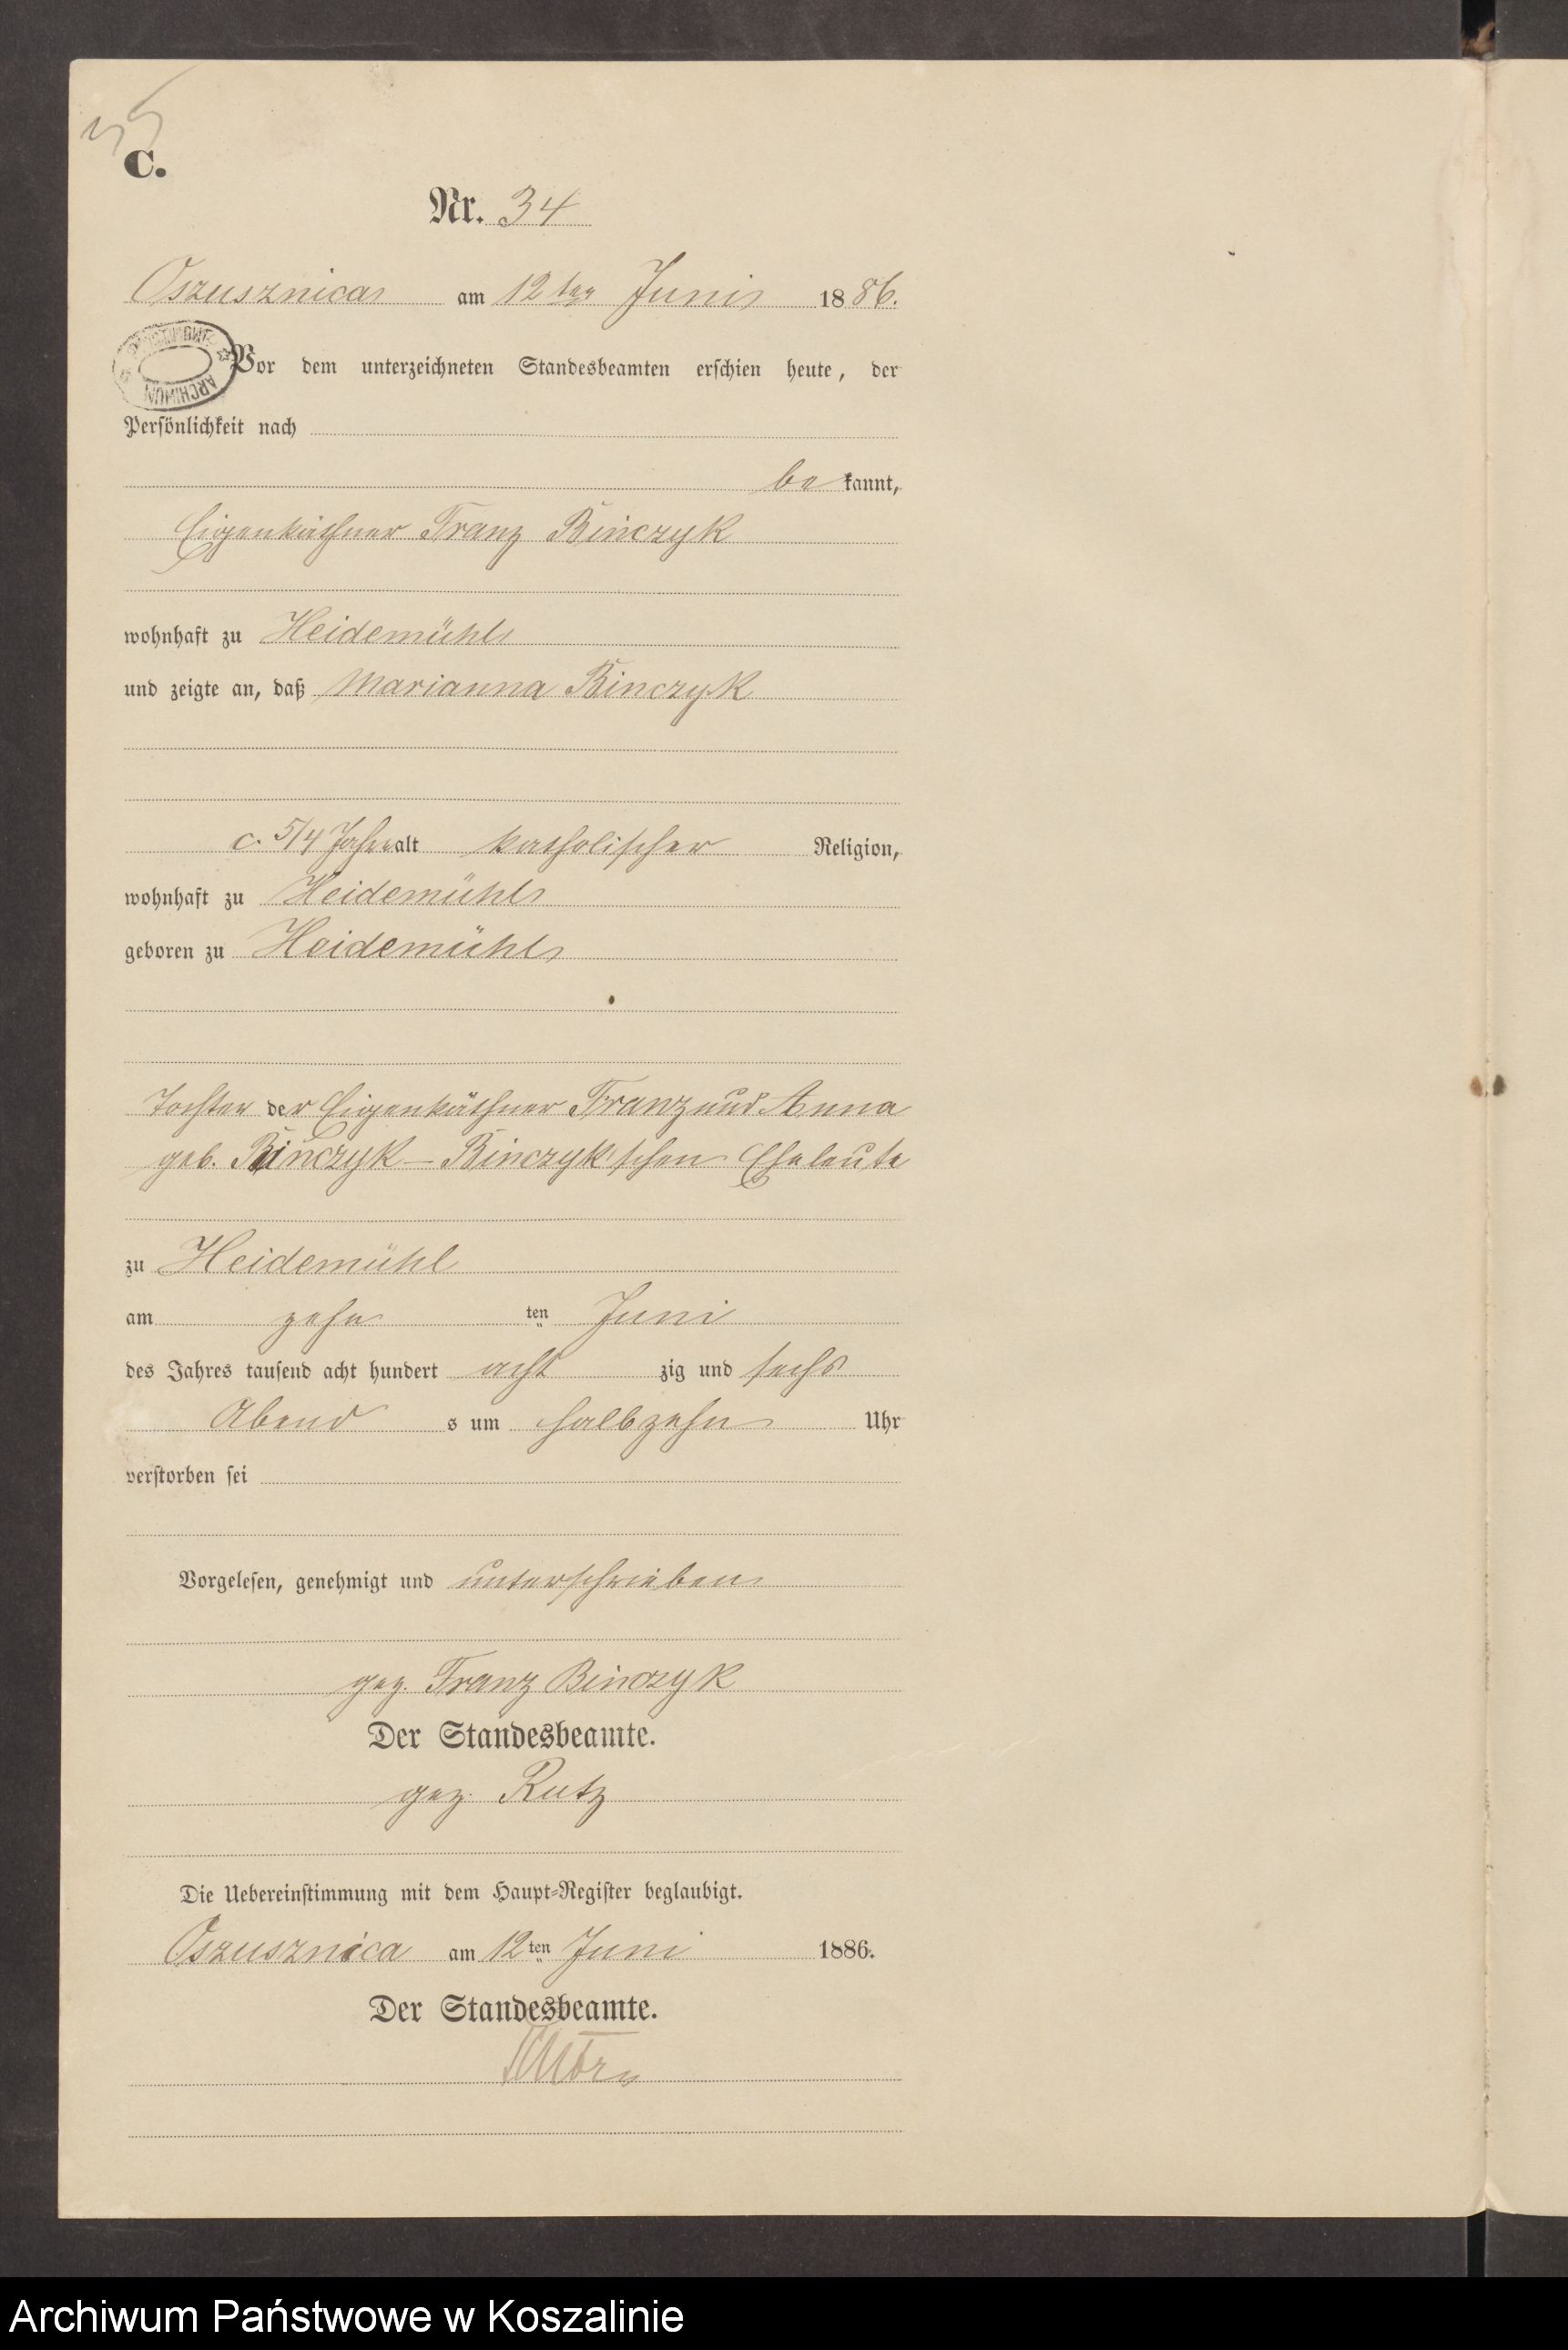 C.
Nr. 34
Oszusznica am 12ten Juni 1886.
Vor dem unterzeichneten Standesbeamten erschien heute, der
Persönlichkeit nach
bekannt,
Eigenkäthner Franz Binczyk
wohnhaft zu Heidemühl
und zeigte an, daß Marianna Binczyk
c. 5/4 Jahre alt katholischer Religion,
wohnhaft zu Heidemühl
geboren zu Heidemühl
Tochter der Eigenkäthner Franz und Anna
geb. Binczyk – Binczyk'schen Eheleute
zu Heidemühl
am zehn ten Juni
des Jahres tausend acht hundert acht zig und sechs
Abend s um halb zehn Uhr
verstorben sei
Vorgelesen, genehmigt und unterschrieben
gez. Franz Binczyk
Der Standesbeamte.
gez. Rutz
Die Uebereinstimmung mit dem Haupt-Register beglaubigt.
Oszusznica am 12ten Juni 1886.
Der Standesbeamte.
Archiwum Państwowe w Koszalinie